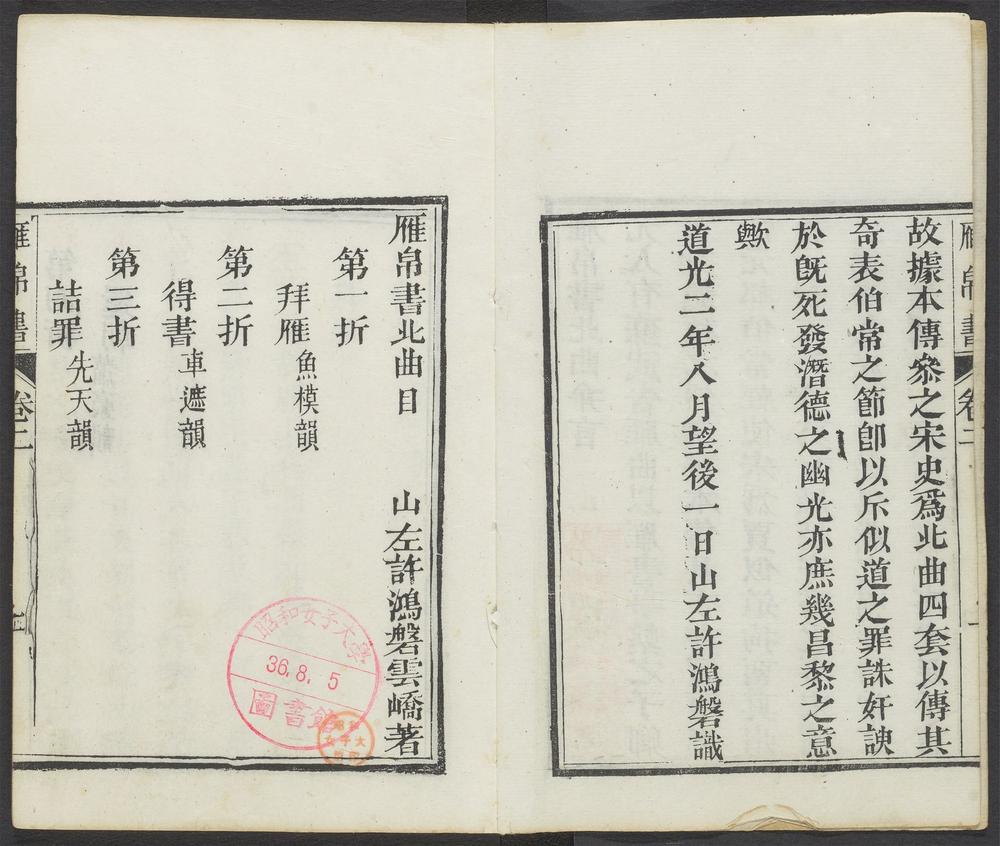 雁帛書
卷二
一
故據本傳叅之宋史爲北曲四套以傳其
奇表伯常之節卽以斥似道之罪誅奸諛
於旣死發潛德之幽光亦庶幾昌黎之意
歟
道光二年八月望後一日山左許鴻磐識
雁帛書北曲目 山左許鴻磐雲嶠著
第一折
拜雁 魚模韻
第二折
得書 車遮韻
第三折
詰罪 先天韻
雁帛書
卷二
昭和女子大学
36.8.5
圖書館